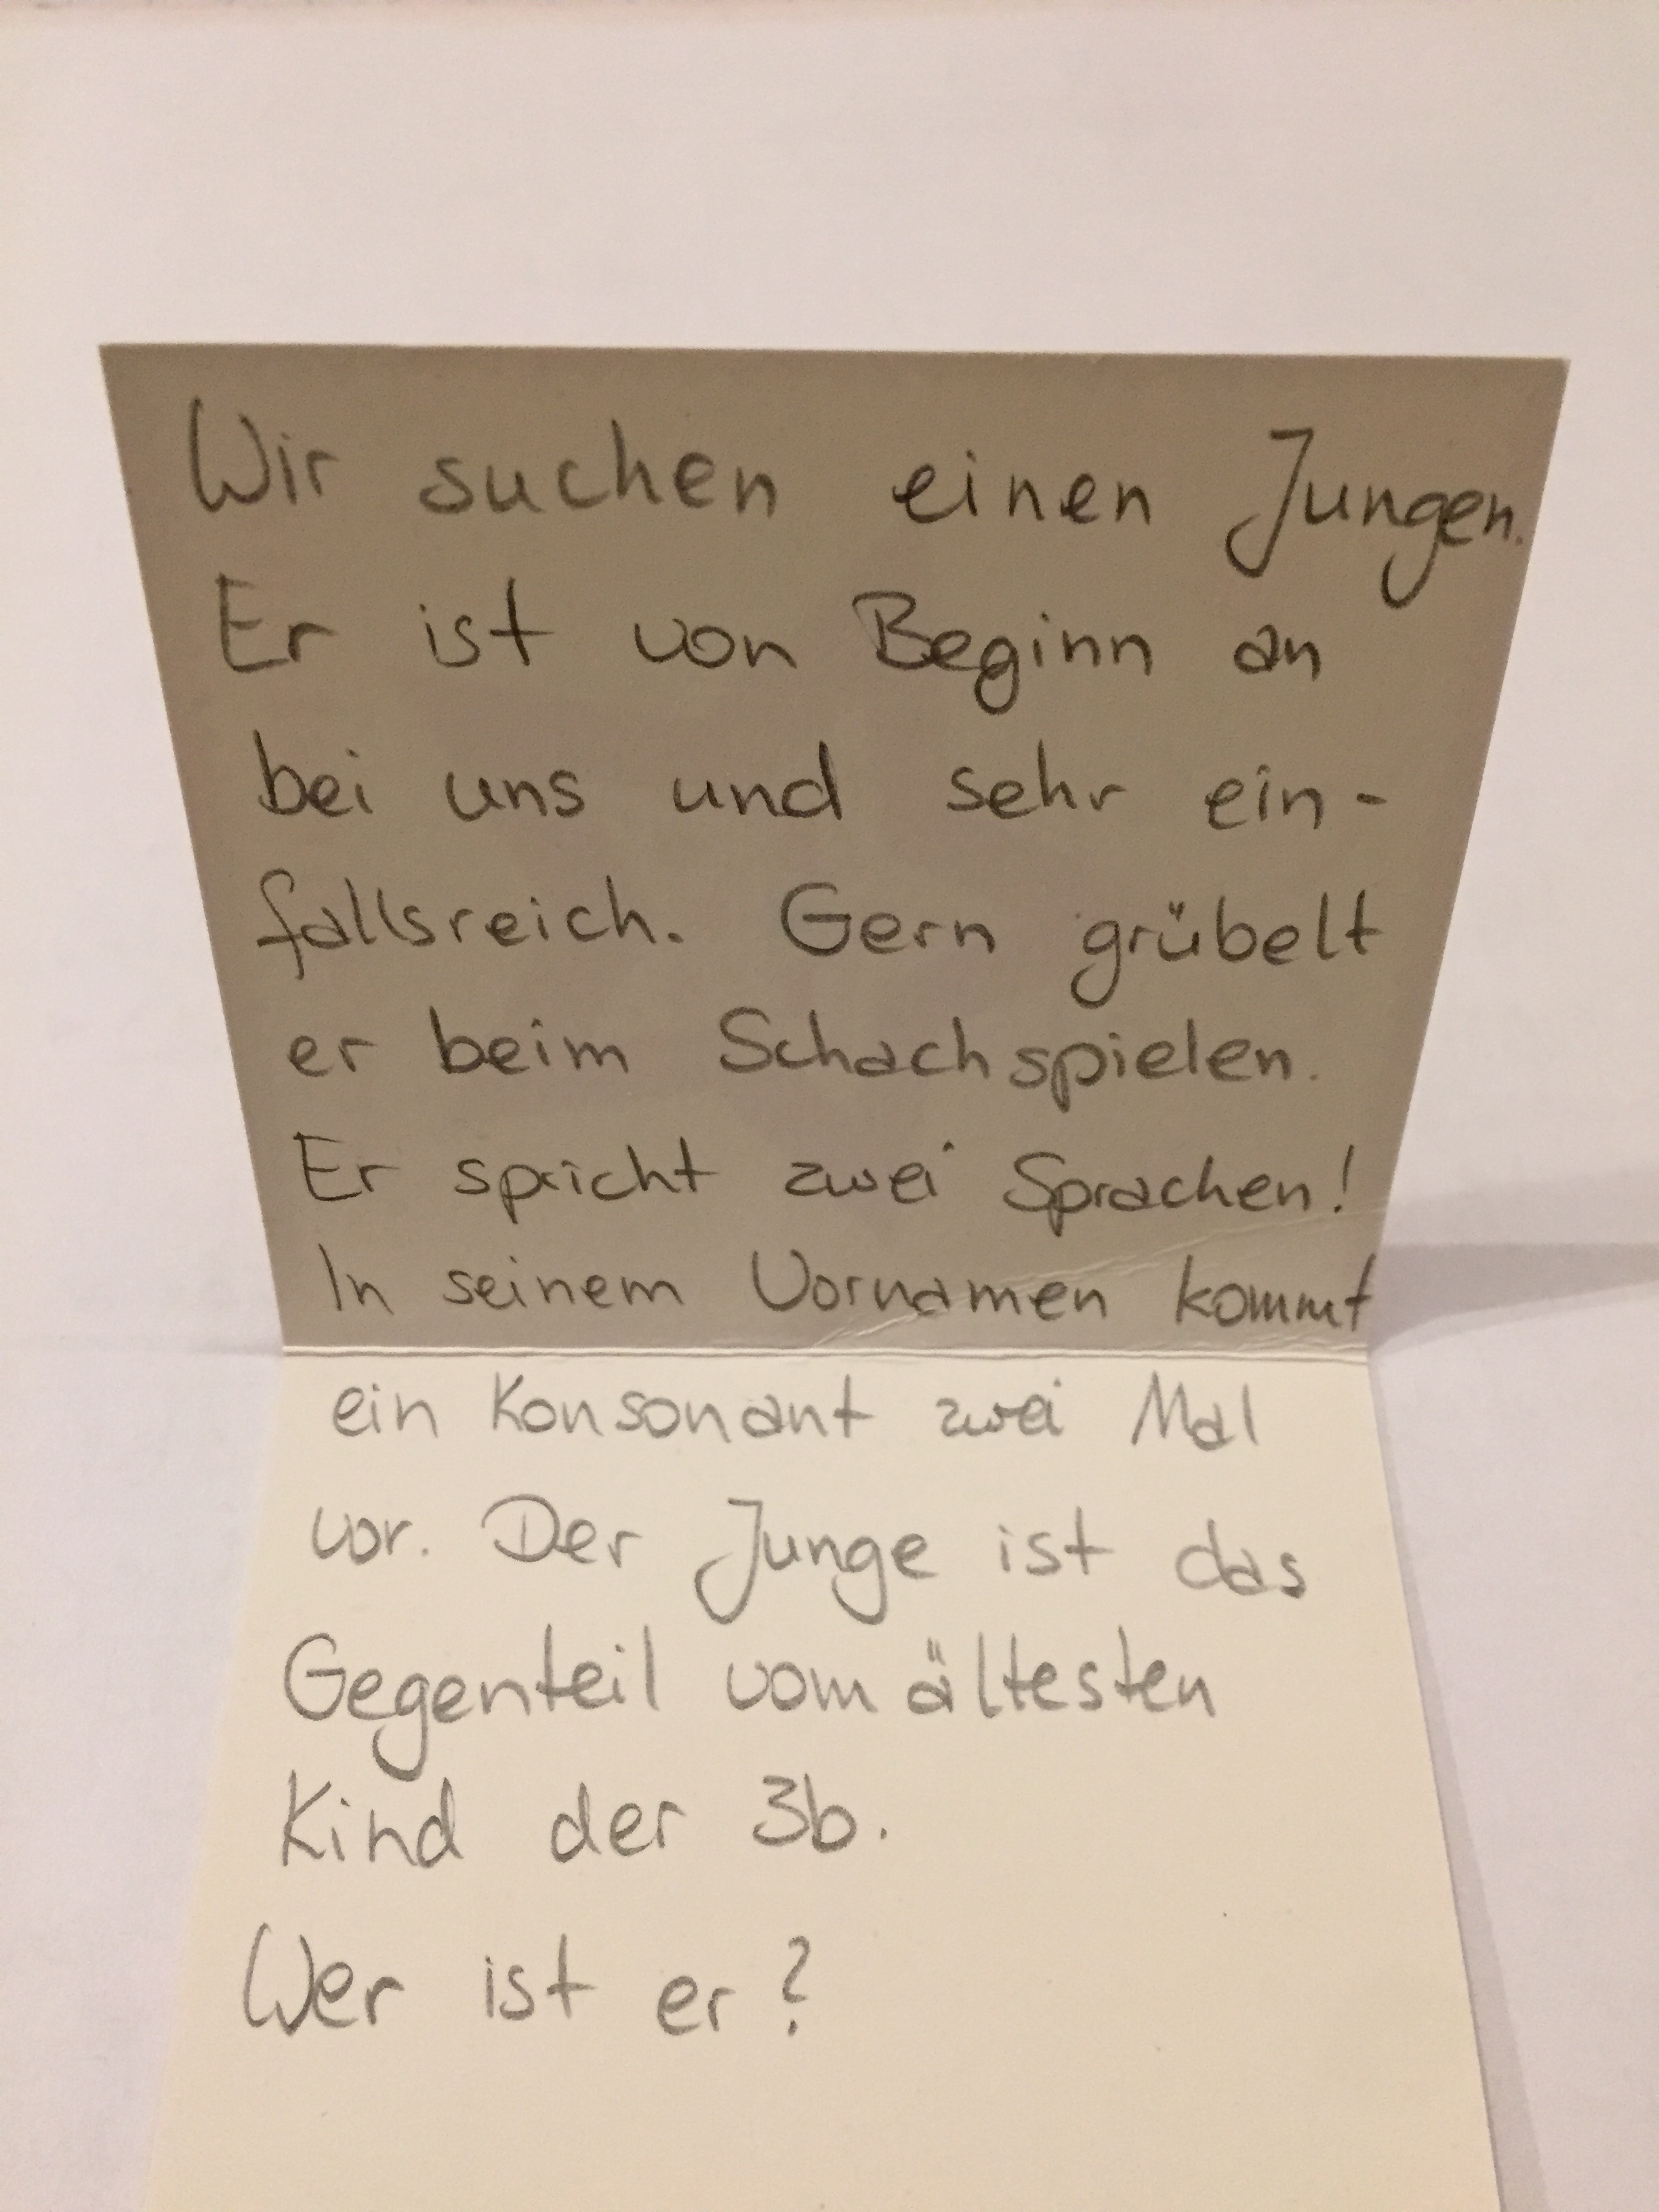 Wir suchen einen Jungen.
Er ist von Beginn an
bei uns und sehr ein-
fallsreich. Gern grübelt
er beim Schachspielen.
Er spricht zwei Sprachen!
In seinem Vornamen kommt
ein Konsonant zwei Mal
vor. Der Junge ist das
Gegenteil vom ältesten
Kind der 3b.
Wer ist er?